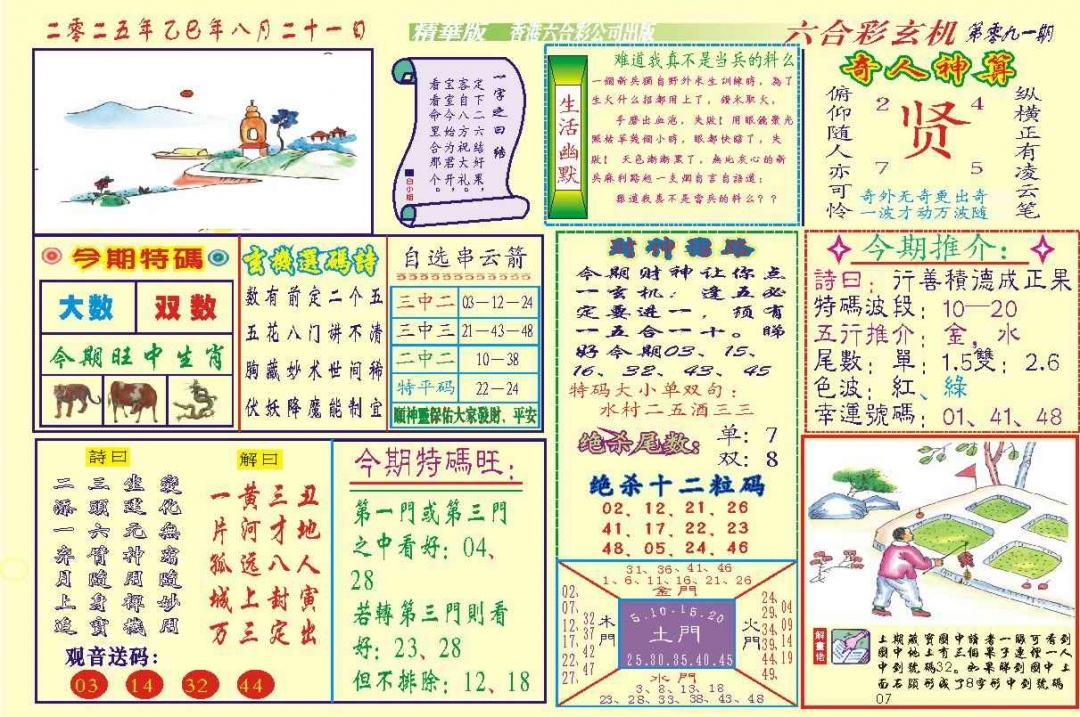 二零二五年乙巳年八月二十一日
精華版 香港六合彩公司出版
六合彩玄机 第零九一期
一字之曰结
定下八六祝大礼
客自今始合那个
看看命里
白小姐
生活幽默
难道我真不是当兵的料么
一個新兵獨自野外求生訓練時，為了
生火什么招都用上了，鑽木取火，
手磨出血泡，失敗！用眼鏡聚光
照枯草幾個小時，眼都快瞎了，失
敗！天色漸漸黑了，無地灰心的新
兵麻利點起一支烟自言自語道：
難道我真不是當兵的料么？？
奇人神算
俯仰随人亦可怜
2 4
贤
7 5
纵横正有凌云笔
奇外无奇更出奇
一波才动万波随
今期特碼
大数 双数
今期旺中生肖
玄機選碼詩
数有前定二个五
五花八门讲不清
胸藏妙术世间稀
伏妖降魔能制宜
自选串云箭
三中二 03—12—24
三中三 21—43—48
二中二 10—38
特平码 22—24
願神靈保佑大家發財、平安
财神语路
今期财神让你点
一玄机：逢五必
定要进一，须有
一五合一十。睇
好今期03、15、
16、32、43、45
特码大小单双句：
水村二五酒三三
绝杀尾数：
单：7
双：8
绝杀十二粒码
02、12、21、26
41、17、22、23
48、05、24、46
今期推介：
詩曰：行善積德成正果
特碼波段：10—20
五行推介：金，水
尾數：單：1.5雙：2.6
色波：紅、綠
幸運號碼：01、41、48
詩曰
變化無窮隨妙用
坐運元神用禪機
三頭六臂隨身寶
二添一弃月上追
解曰
丑地人寅出
三才八封定
黄河远上三
一片孤城万
观音送码：
03 14 32 44
今期特碼旺：
第一門或第三門
之中看好：04、
28
若轉第三門則看
好：23、28
但不排除：12、18
31、36、41、46
1、6、11、16、21、26
金門
02、07、12、17、22、27、
32、37、42、47
木門
5.10.15.20
土門
25.30.35.40.45
火門
24、29、34、39、44、49
04、09、14、19
水門
3、8、13、18
23、28、33、38、43、48
解畫佬
上期藏寶圖中讀者一眼可看到
圖中地上有三個果子連裡一人
中到號碼32。如果睇到圖中上
面石頭形成了8字形中到號碼
07